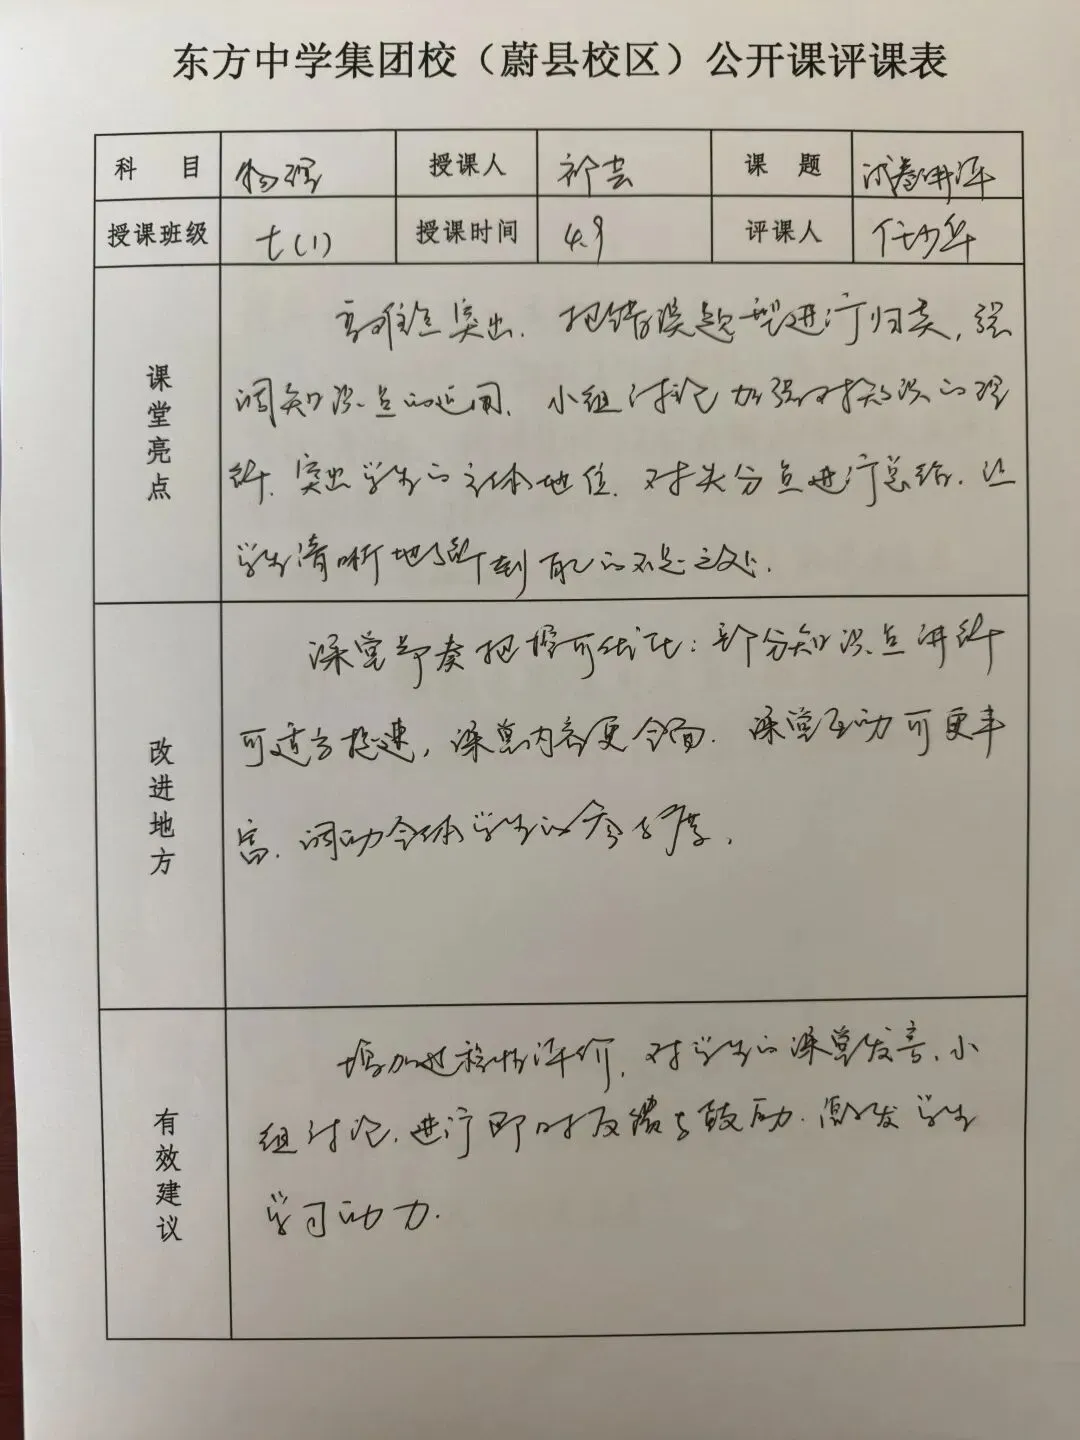 东方中学集团校（蔚县校区）公开课评课表
科 目 物理 授课人 祁芸 课 题 试卷讲评
授课班级 七(1) 授课时间 4.9 评课人 任少华
课堂亮点
重难点突出. 把错误题型进行归类, 强
调知识点的运用. 小组讨论加强对知识的理
解. 突出学生的主体地位. 对失分点进行总结. 让
学生清晰地了解到自己的不足之处.
改进地方
课堂节奏把控可优化: 部分知识点讲解
可适当提速, 课堂内容更全面. 课堂互动可更丰
富. 调动全体学生的参与度.
有效建议
增加过程性评价, 对学生的课堂发言、小
组讨论, 进行即时反馈与鼓励. 激发学生
学习动力.